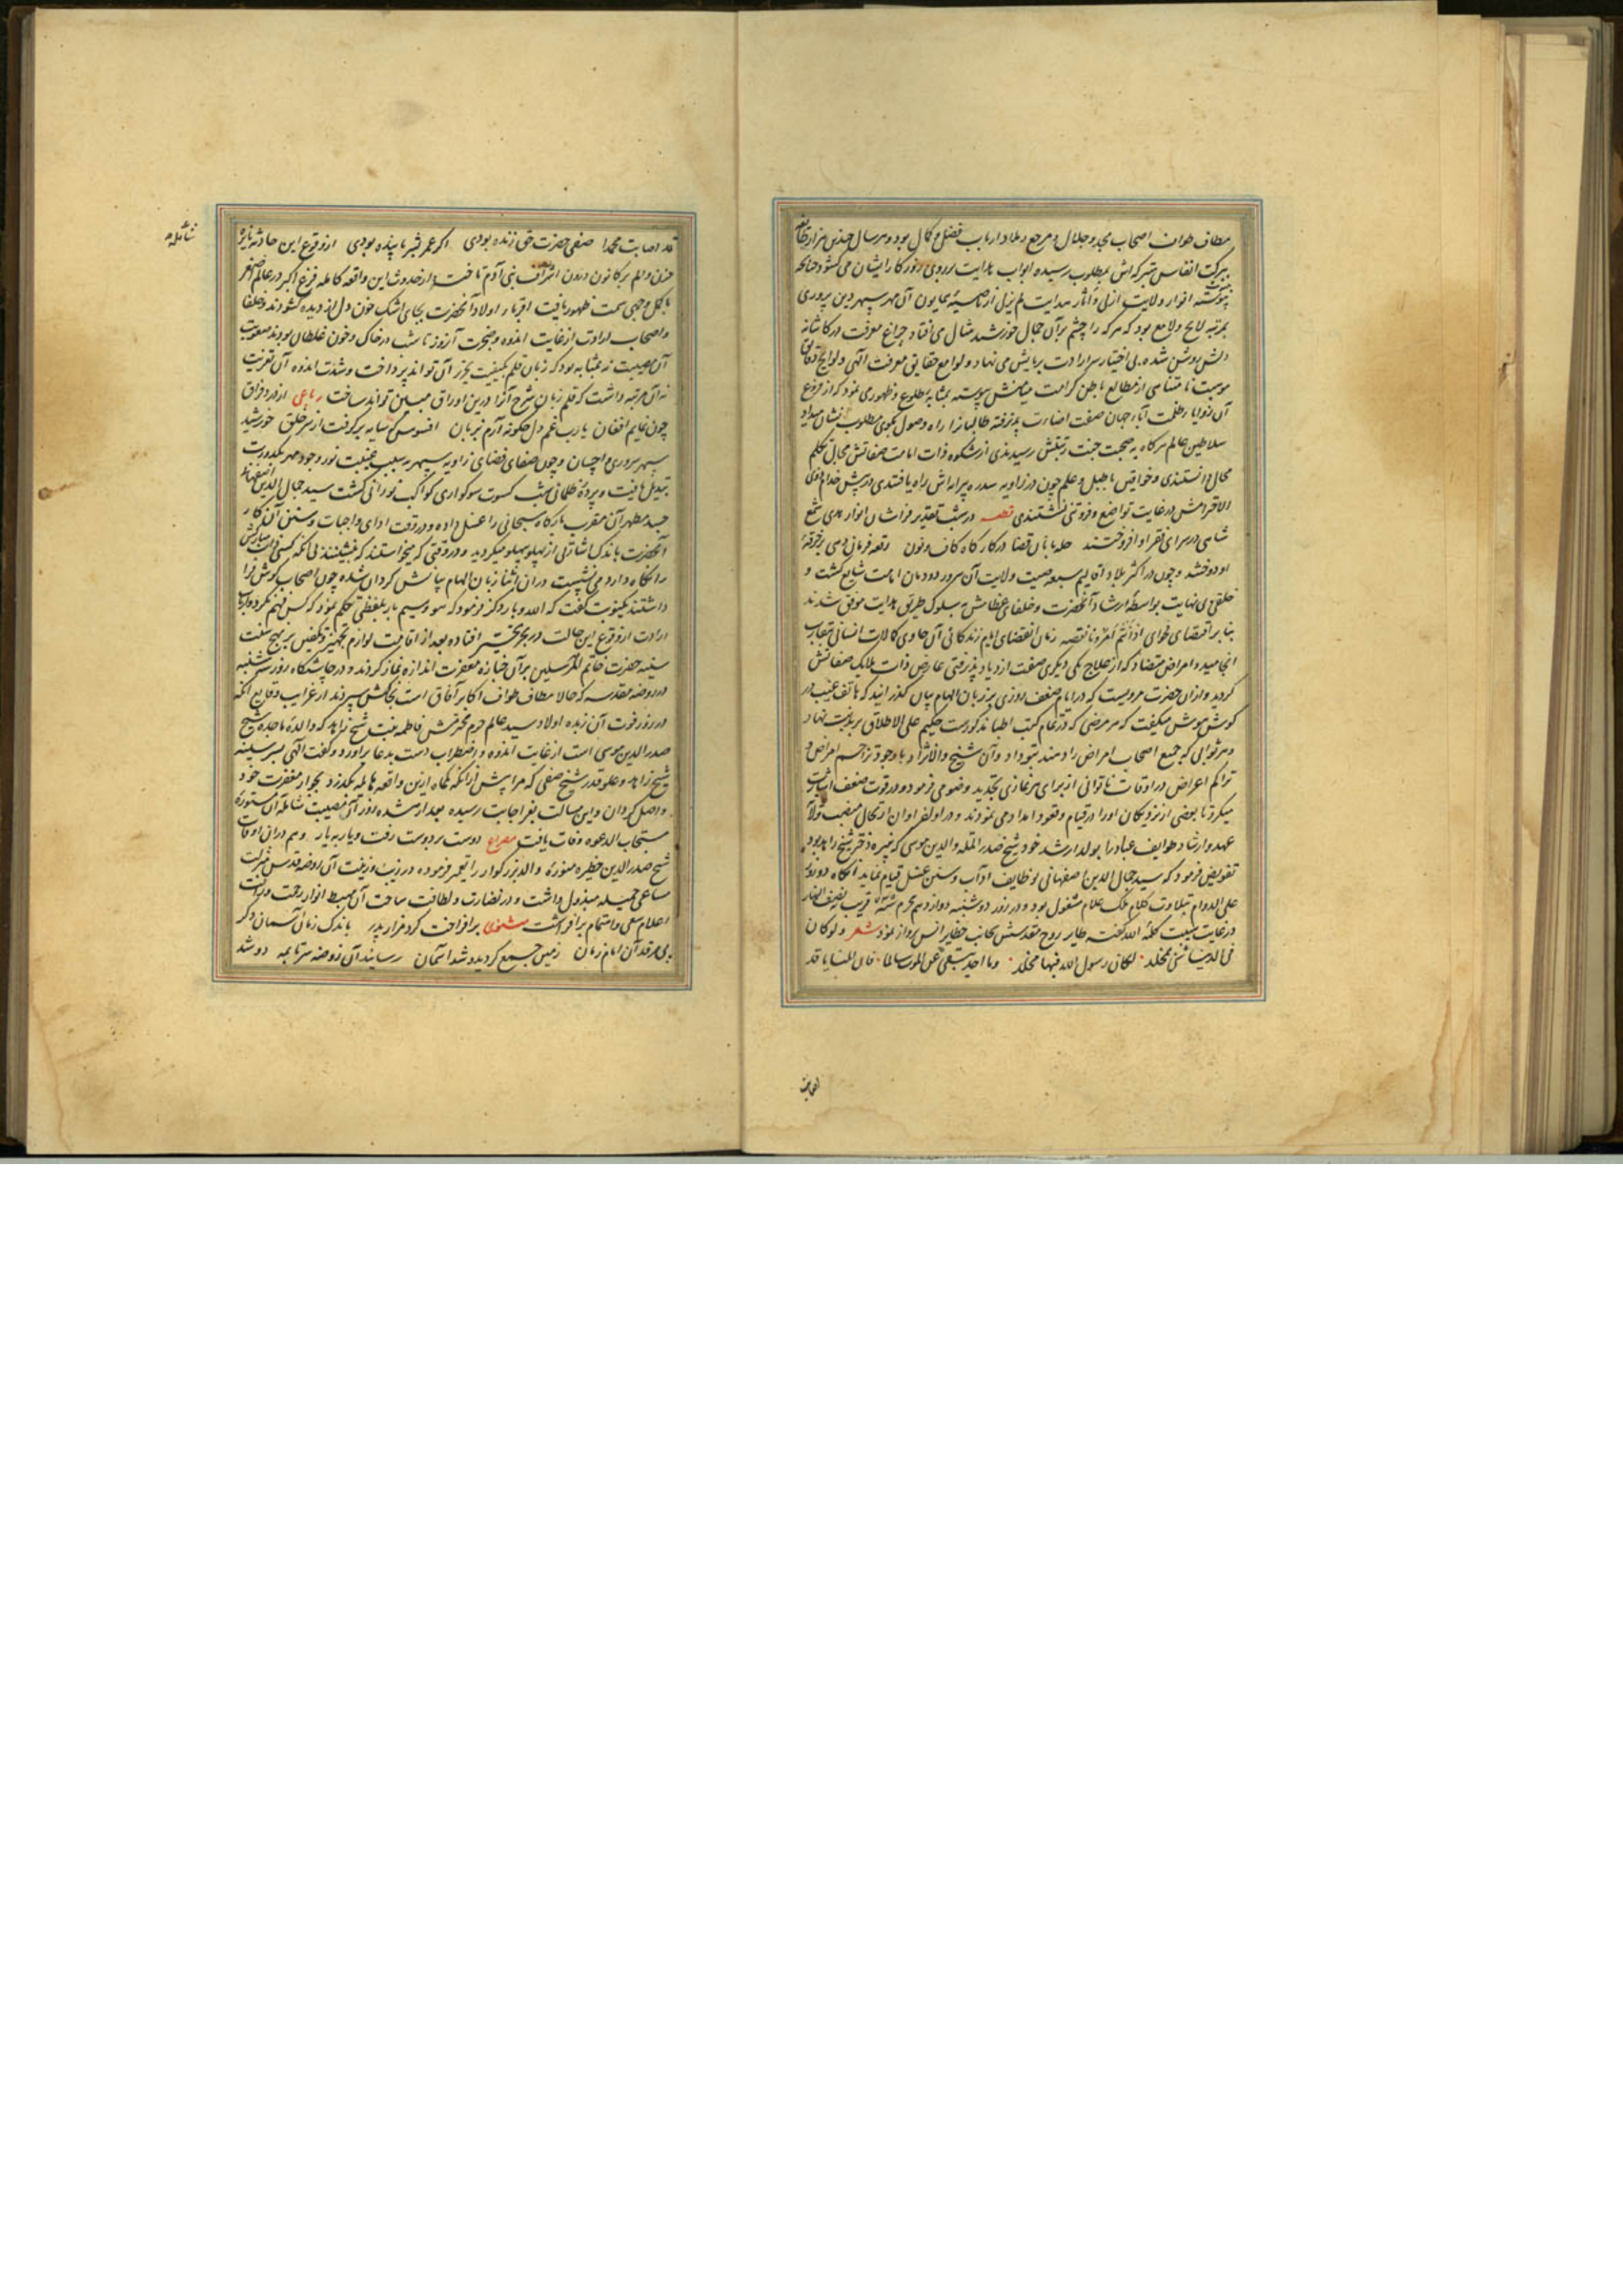 مطاف طواف اصحاب مجد و جلال و مرجع و ملاذ ارباب فضل و کمال بود و هر سال چندین هزار
ببرکت انفاس متبرکه‌اش بمطلوب رسیده ابواب هدایت بر روی روزگار ایشان می‌کشود چنانچه
پیوسته انوار ولایت ازلی و آثار هدایت لم یزل از ناصیهٔ همایون آن مهر سپهر دین پروری
بمرتبه لایح و لامع بود که هر که را چشم بر آن جمال خورشید مثال می‌افتاد چراغ معرفت در کاشانه
دلش روشن شده بی اختیار سر ارادت برپایش می‌نهاد و لوامع حقایق معرفت الهی و لوایح دقایق
موهبت نامتناهی از مطالع باطن کرامت میامنش پیوسته بمثابهٔ طلوع و ظهور می نمود که از فروغ
آن زوایاء ظلمت آباد جهان صفت اضاءت پذیرفته طالبانرا راه وصول بکوی مطلوب نشان میداد
سلاطین عالم هرگاه به صحبت جنت رتبتش رسیدندی از شکوه ذات امامت صفاتش مجال تکلم
محال دانستندی و خواقین با طبل و علم چون در زاویه سدره پیراه‌اش راه یافتندی در پیش خدام ذوی
الاقترامش در غایت تواضع و فروتنی نشستندی قطعه در شب تقدیر فراشان انوار هدی شمع
شاهی در سرای فقر او افروختند حله بافان قضا در کارگاه کاف و نون رقعه فرمان دهی بر خرقهٔ
او دوختند و چون در اکثر بلاد اقالیم سبعه صیت ولایت آن سرور دودمان امامت شایع گشت و
خلقی بی نهایت بواسطهٔ ارشاد آنحضرت و خلفای عظامش به سلوک طریق هدایت موفق شدند
بنا بر اقتضای فحوای اذا تم امر دنا نقصه زمان انقضای ایام زندگانی آن حاوی کمالات انسانی بتقارب
انجامید و امراض متضاد که از علاج یکی دیگری صفت ازدیاد پذیرفتی عارض ذات ملایک صفاتش
گردید و ازان حضرت مرویست که در ایام ضعف روزی بر زبان الهام بیان گذرانید که هاتف غیب در
گوش هوش میگفت که هر مرضی که در تمام کتب اطبا مذکورست حکیم علی الاطلاق بر بدنت نهاد
و هر ثوابی که جمیع اصحاب امراض را دهند بتو داد و آن شیخ والانژاد با وجود تزاحم امراض و
تراکم اعراض در اوقات ناتوانی از برای هر نمازی تجدید وضو می فرمود و در وقت ضعف
میکرد تا بعضی از نزدیکان او را در قیام و قعود امداد می نمودند و در اوایل اوان ارتحال منصب
عهد و ارشاد طوایف عباد را بولد ارشد خود شیخ صدر الملة والدین موسی که نبیره دختر شیخ زاهد بود
تفویض فرمود که سید جمال الدین اصفهانی بوظایف آداب و سنن غسل قیام نماید آنگاه دو روز
علی الدوام بتلاوت کلام ملک علام مشغول بود و در روز دوشنبه دوازدهم محرم قریب بنصف النهار
در غایت کلمه الله گفته طایر روح مقدسش بجانب حظایر انس پرواز نمود شعر و لو کان
فی الدنیا شئ مخلد لکان رسول الله فیها مخلد وما احد یبقی عن الموت سالما فان المنایا قد
اصابت
قد اصابت محمدا صفی حضرت حق زنده بودی اگر عمر بشر پاینده بودی از وقوع این حادثه نایره
حزن و الم بر کانون درون اشراف بنی آدم تافت و از حدوث این واقعه هایله فزع اکبر در عالم اصغر
باکمل وجهی سمت ظهور یافت اقربا و اولاد آنحضرت بجای اشک خون دل از دیده گشودند و خلفا
و اصحاب ارادت از غایت اندوه و ضجرت آن روز تا شب در خاک و خون غلطان بودند صعوبت
آن مصیبت نه بمثابه بود که زبان قلم بکیفیت تحریر آن تواند پرداخت و شدت اندوه آن تعزیت
نه آن مرتبه داشت که قلم زبان شرح آنرا درین اوراق مبین تواند ساخت رباعی از درد فراق
چون نمایم افغان یا رب غم دل چگونه آرم بزبان افسوس که سایه برگرفت از سر خلق خورشید
سپهر سروری و احسان و چون صفای فضای زاویه سپهر بسبب غیبت نور وجود مهر بکدورت
تبدیل یافت و پردهٔ ظلمانی شب کسوت سوگواری کواکب نورانی گشت سید جمال الدین اصفهانی
جسد مطهر آن مقرب بارگاه سبحانی را غسل داده و در وقت ادای واجبات و سنن آن کار
آنحضرت باندک اشارتی از پهلو بپهلو میگردید و در وقتی که میخواستند که بنشینند بی آنکه کسی
را نگاه دارد می نشست و در آن اثنا زبان الهام بیانش گردان شده چون اصحاب گوش فرا
داشتند یکنوبت گفت که الله و بار دیگر فرمود که هو و سیم بار بلفظی تکلم نمود که کس فهم نکرد و ارباب
ارادت از وقوع این حالت در بحر تحیر افتاده بعد از اقامت لوازم تجهیز و تکفین بر نهج سنت
سنیه حضرت خاتم المرسلین بر آن جنازه مغفرت اندازه نماز گزاردند و در چاشتگاه روز سه شنبه
در روضه مقدسه که حالا مطاف طواف اکابر آفاق است بخاکش سپردند از غرایب وقایع آنکه
در روز فوت آن زبده اولاد سید عالم حرم محترمش فاطمه بنت شیخ زاهد که والدهٔ ماجده شیخ
صدر الدین موسی است از غایت اندوه و اضطراب دست بدعا برآورد و گفت الهی بسر سینه
شیخ زاهد و علو قدر شیخ صفی که مرا پیش از آنکه یکماه ازین واقعه هایله بگذرد بجوار مغفرت خود
واصل گردان و این مسالت بعز اجابت رسیده بعد از هشده روز آن مستوره
مستجاب الدعوه وفات یافت مصراع دوست بر دوست رفت و یار به یار و هم در آن اوقات
شیخ صدر الدین حظیره منورهٔ والد بزرگوار را تعمیر فرموده در زیب و زینت آن روضه قدس منزلت
مساعی جمیله مبذول داشت و در نضارت و لطافت ساحت آن مهبط انوار رحمت
اعلام سعی و اهتمام برافراشت مثنوی برافراخت گرد مزار پدر باندک زمان آسمان دگر
پی مرقد آن امام زمان زمین جمع گردید و شد آسمان رسانید آن روضه سر تا بمه دو شد